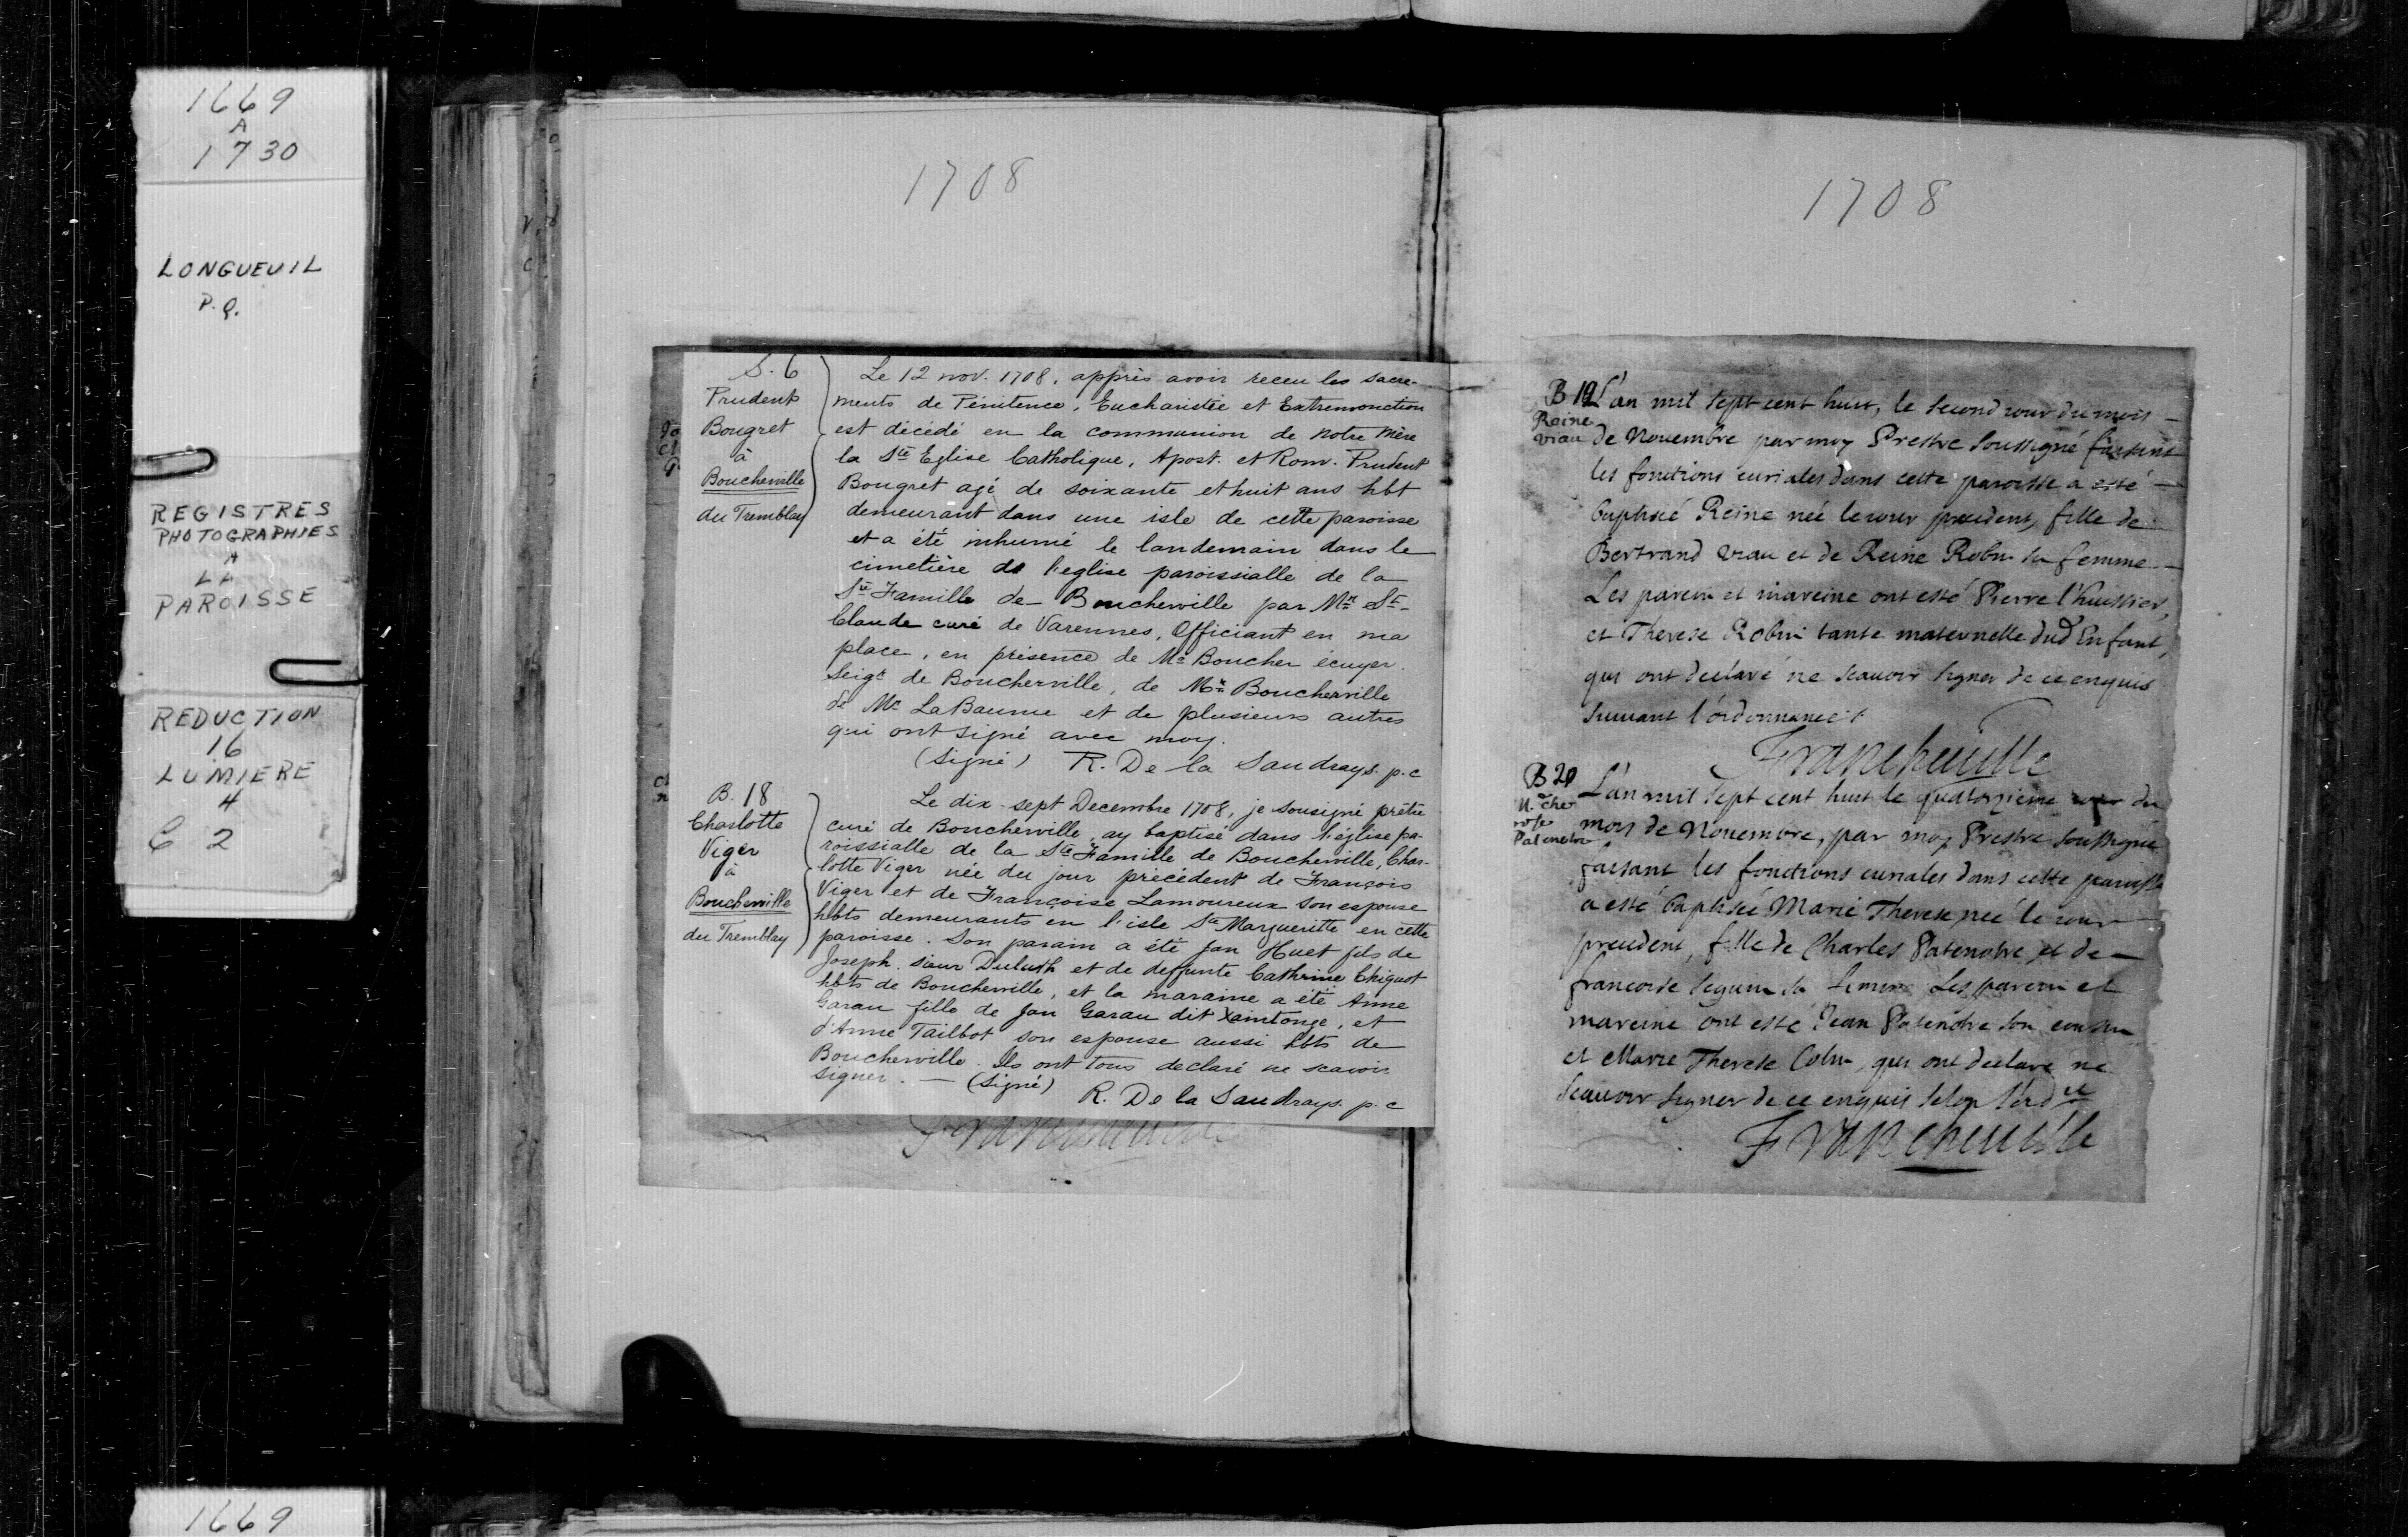 1669
A
1730
LONGUEUIL
P.Q.
REGISTRES
PHOTOGRAPHIES
A
LA
PAROISSE
REDUCTION
16
LUMIERE
4
C 2
1669
1708
S. 6
Prudent
Bougret
à
Boucherville
du Tremblay
Le 12 nov. 1708, apprès avoir receu les sacre-
ments de Pénitence, Eucharistie et Extremonction
est décédé en la communion de notre mère
la Ste Eglise Catholique, Apost. et Rom. Prudent
Bougret agé de soixante et huit ans hbt
demeurant dans une isle de cette paroisse
et a été inhumé le landemain dans le
cimetière de l'eglise paroissialle de la
Ste Famille de Boucherville par Mr St-
Claude curé de Varennes, Officiant en ma
place, en présence de Mr Boucher écuyer.
Seigr de Boucherville, de Mr Boucherville
de Mr LaBaume et de plusieurs autres
qui ont signé avec moy.
(Signé) R. De la Saudrays. p.c
B. 18
Charlotte
Viger
à
Boucherville
du Tremblay
Le dix-sept Decembre 1708, je sousigné prêtre
curé de Boucherville, ay baptisé dans l'église pa-
roissialle de la Ste Famille de Boucherville, Char-
lotte Viger née du jour précédent de François
Viger et de Françoise Lamoureux son espouse
hbts demeurants en l'isle Ste Margueritte en cette
paroisse. Son parain a été Jan Huet fils de
Joseph. sieur Duluth et de deffunte Cathrine Chiquot
hbts de Boucherville, et la maraine a été Anne
Garau fille de Jan Garau dit Xaintonge, et
d'Anne Tailbot son espouse aussi hbts de
Boucherville. Ils ont tous declaré ne scavoir
signer. — (Signé)
R. De la Saudrays. p.c
1708
B 19
Reine
viau
L'an mil sept cent huit, le second iour du mois
de Nouembre par moy Prestre soussigné faisant
les fonctions curiales dans cette paroisse a esté
baptisée Reine née le iour precedent, fille de
Bertrand viau et de Reine Robin sa femme
Les parein et mareine ont esté Pierre l'huissier,
et Therese Robin tante maternelle dud Enfant,
qui ont declaré ne scauoir signer de ce enquis
suiuant l'ordonnance.
Francheuille
B 20
Patenotre
L'an mil sept cent huit le quatorzieme iour du
mois de Nouembre, par moy Prestre soussigné
faisant les fonctions curiales dans cette paroisse
a esté baptisée Marie Therese, née le iour
precedent, fille de Charles Patenotre et de
francoise seguin sa femme Les parein et
mareine ont esté Jean Patenotre son cousin
et Marie Therese Colin, qui ont declaré ne
scauoir signer de ce enquis selon l'ordce
Francheuille